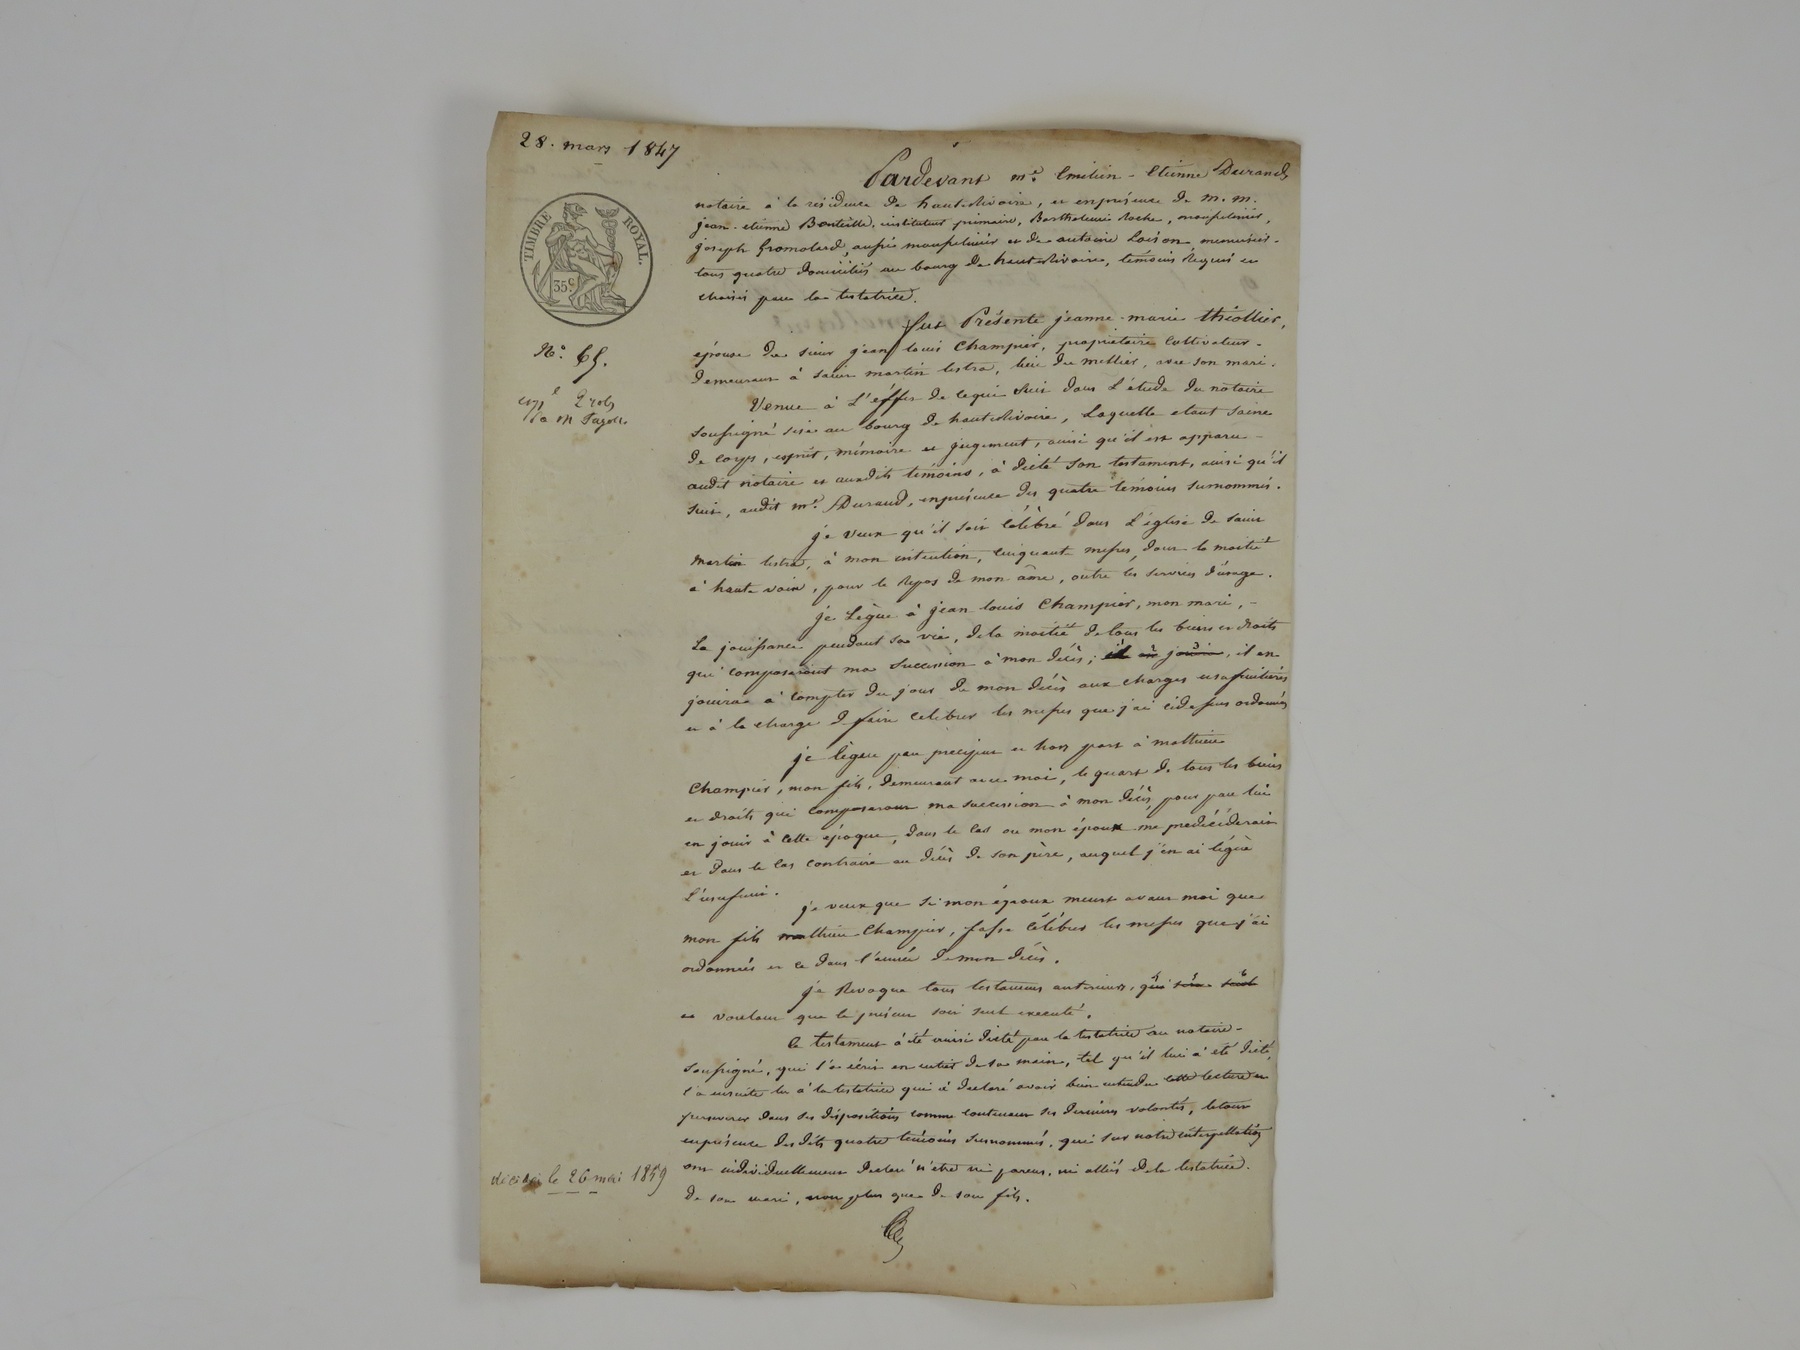 28. mars 1847
TIMBRE ROYAL.
35c
N.° 65.
décédé le 26 mai 1859
Pardevant me. Emilien-Etienne Durand
notaire à la résidence de hauterivoire, et en présence de m.m.
jean-etienne Bouteille, instituteur primaire, Barthelemie Roche, mousselinier,
joseph Gromolard, aussi mousselinier et de antoine Loison, menuisier.
tous quatre domiciliés au bourg de hauterivoire, témoins requis et
choisis par la testatrice.
fut Présente jeanne-marie thiollier,
épouse de sieur jean louis Champier, propriétaire cultivateur-
demeurant à saint martin lestra, lieu du mellier, avec son mari.
Venue à L'éffet de ce qui suit dans L'étude du notaire
soussigné sise au bourg de hauterivoire, Laquelle étant saine
de corps, esprit, mémoire et jugement, ainsi qu'il est apparu-
audit notaire et auxdits témoins, à dicté son testament, ainsi qu'il
suit, audit me. Durand, en présence des quatre témoins surnommés.
je veux qu'il soit célébré dans L'église de saint
martin lestra, à mon intention, cinquante messes, dont la moitié
à haute voix, pour le repos de mon âme, outre les services d'usage.
je Lègue à jean louis Champier, mon mari,-
La jouissance pendant sa vie, de la moitié de tous les biens et droits
qui composeront ma succession à mon décès; il en jouira, il en
jouira à compter du jour de mon décès aux charges usufruitières
et à la charge de faire celebrer les messes que j'ai cidessus ordonnées
je lègue par preciput et hors part à mathieu
Champier, mon fils, demeurant avec moi, le quart de tous les biens
et droits qui composeront ma succession à mon décès, pour par lui
en jouir à cette époque, dans le cas ou mon époux me prédécéderait
et dans le cas contraire au décès de son père, auquel j'en ai légué
L'usufruit.
je veux que si mon époux meurt avant moi que
mon fils mathieu Champier, fasse célébrer les messes que j'ai
ordonnées et ce dans l'année de mon décès.
je Revoque tous testaments anterieurs,
et voulant que le présent soit seul executé.
Ce testament à été ainsi dicté par la testatrice au notaire-
soussigné, qui l'a écrit en entier de sa main, tel qu'il lui à été dicté,
l'a ensuite lu à la testatrice qui à declaré avoir bien entendu cette lecture et
perseverer dans ses dispositions comme contenant ses dernières volontés, le tout
en présence desdits quatre témoins surnommés, qui sur notre interpellation
ont individuellement declaré n'etre ni parens, ni alliés de la testatrice.
de son mari, non plus que de son fils.